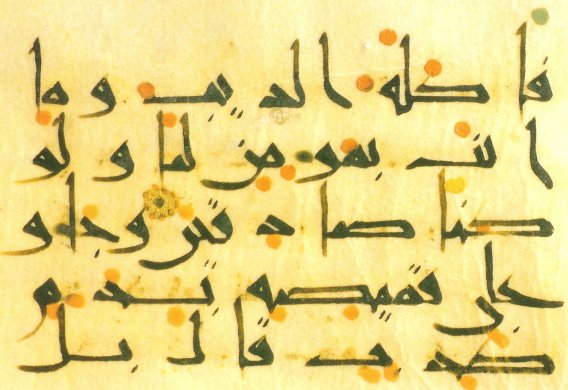 فاكله الذيب وما
انت بمومن لنا ولو
كنا صادقين وجاو
على قميصه بدم
كذب قال بل